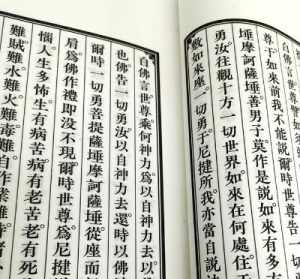 尊于如來前我不能說
埵摩訶薩埵善男子莫作是說如來有多方
勇汝往觀十方一切世界如來在何處住于
敷如來座。一切勇于尼揵所我亦當自說
白佛言世尊乘何神力為以自神力去為
也佛告一切勇汝以自神力去還時以佛
爾時一切勇菩提薩埵摩訶薩埵從座而
肩為佛作禮即沒不現爾時世尊為尼揵
惱人生多怖生有病苦病有老苦老有死
難賊難水難火難毒難自作業難